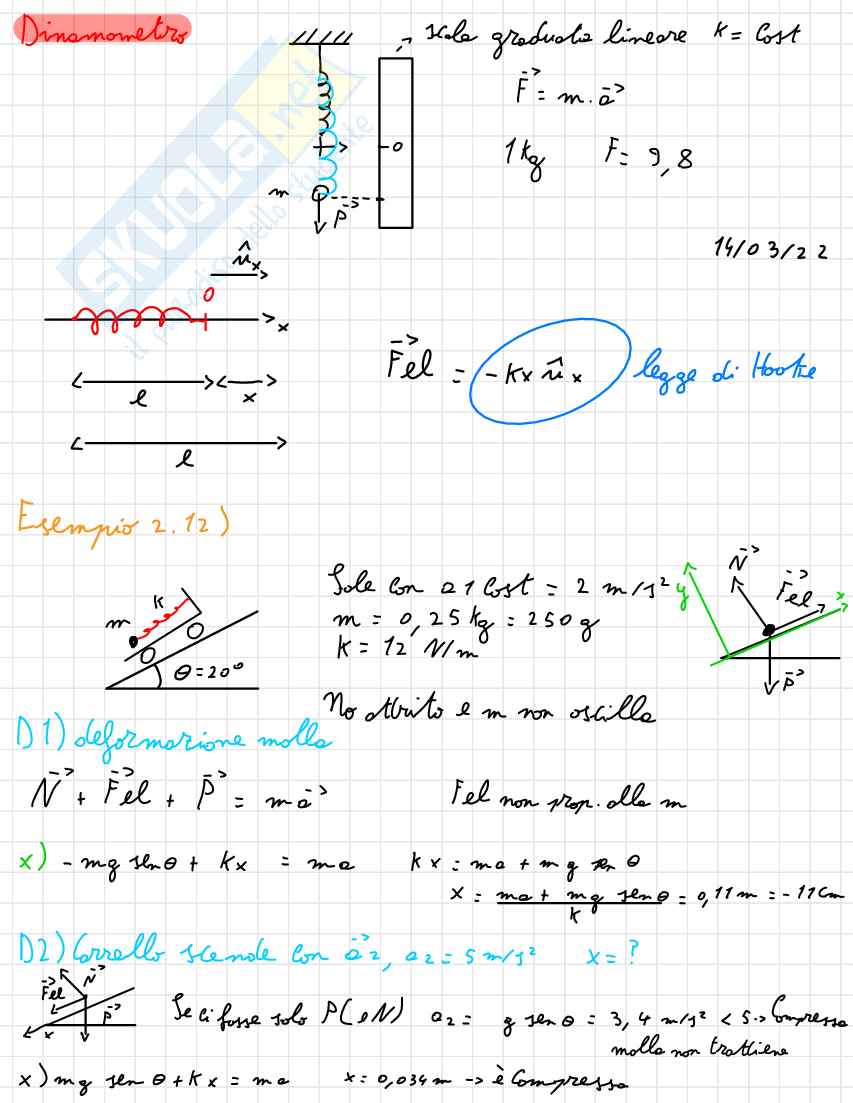 Dinamometro
scala graduata lineare K = Cost
F = m · a
1 kg F = 9,8
0
m
P
14/03/22
SKUOLA.net
il paradiso dello studente
û x
0
x
Fel = - Kx û x legge di Hooke
l x
l
Esempio 2.12)
Sale con a1 Cost = 2 m/s²
m = 0,25 kg = 250 g
K = 12 N/m
No attrito e m non oscilla
m K
θ = 20°
N
Fel
y x
P
D1) deformazione molla
N + Fel + P = ma
Fel non prop. alla m
x) - mg sen θ + Kx = ma
Kx = ma + mg sen θ
x = ma + mg sen θ / K = 0,11 m = -11 Cm
D2) Carrello scende con a2, a2 = 5 m/s² x = ?
Fel N
P
x
Se ci fosse solo P (e N) a2 = g sen θ = 3,4 m/s² < 5 -> Compressa
molla non trattiene
x) mg sen θ + Kx = ma x = 0,034 m -> è Compressa